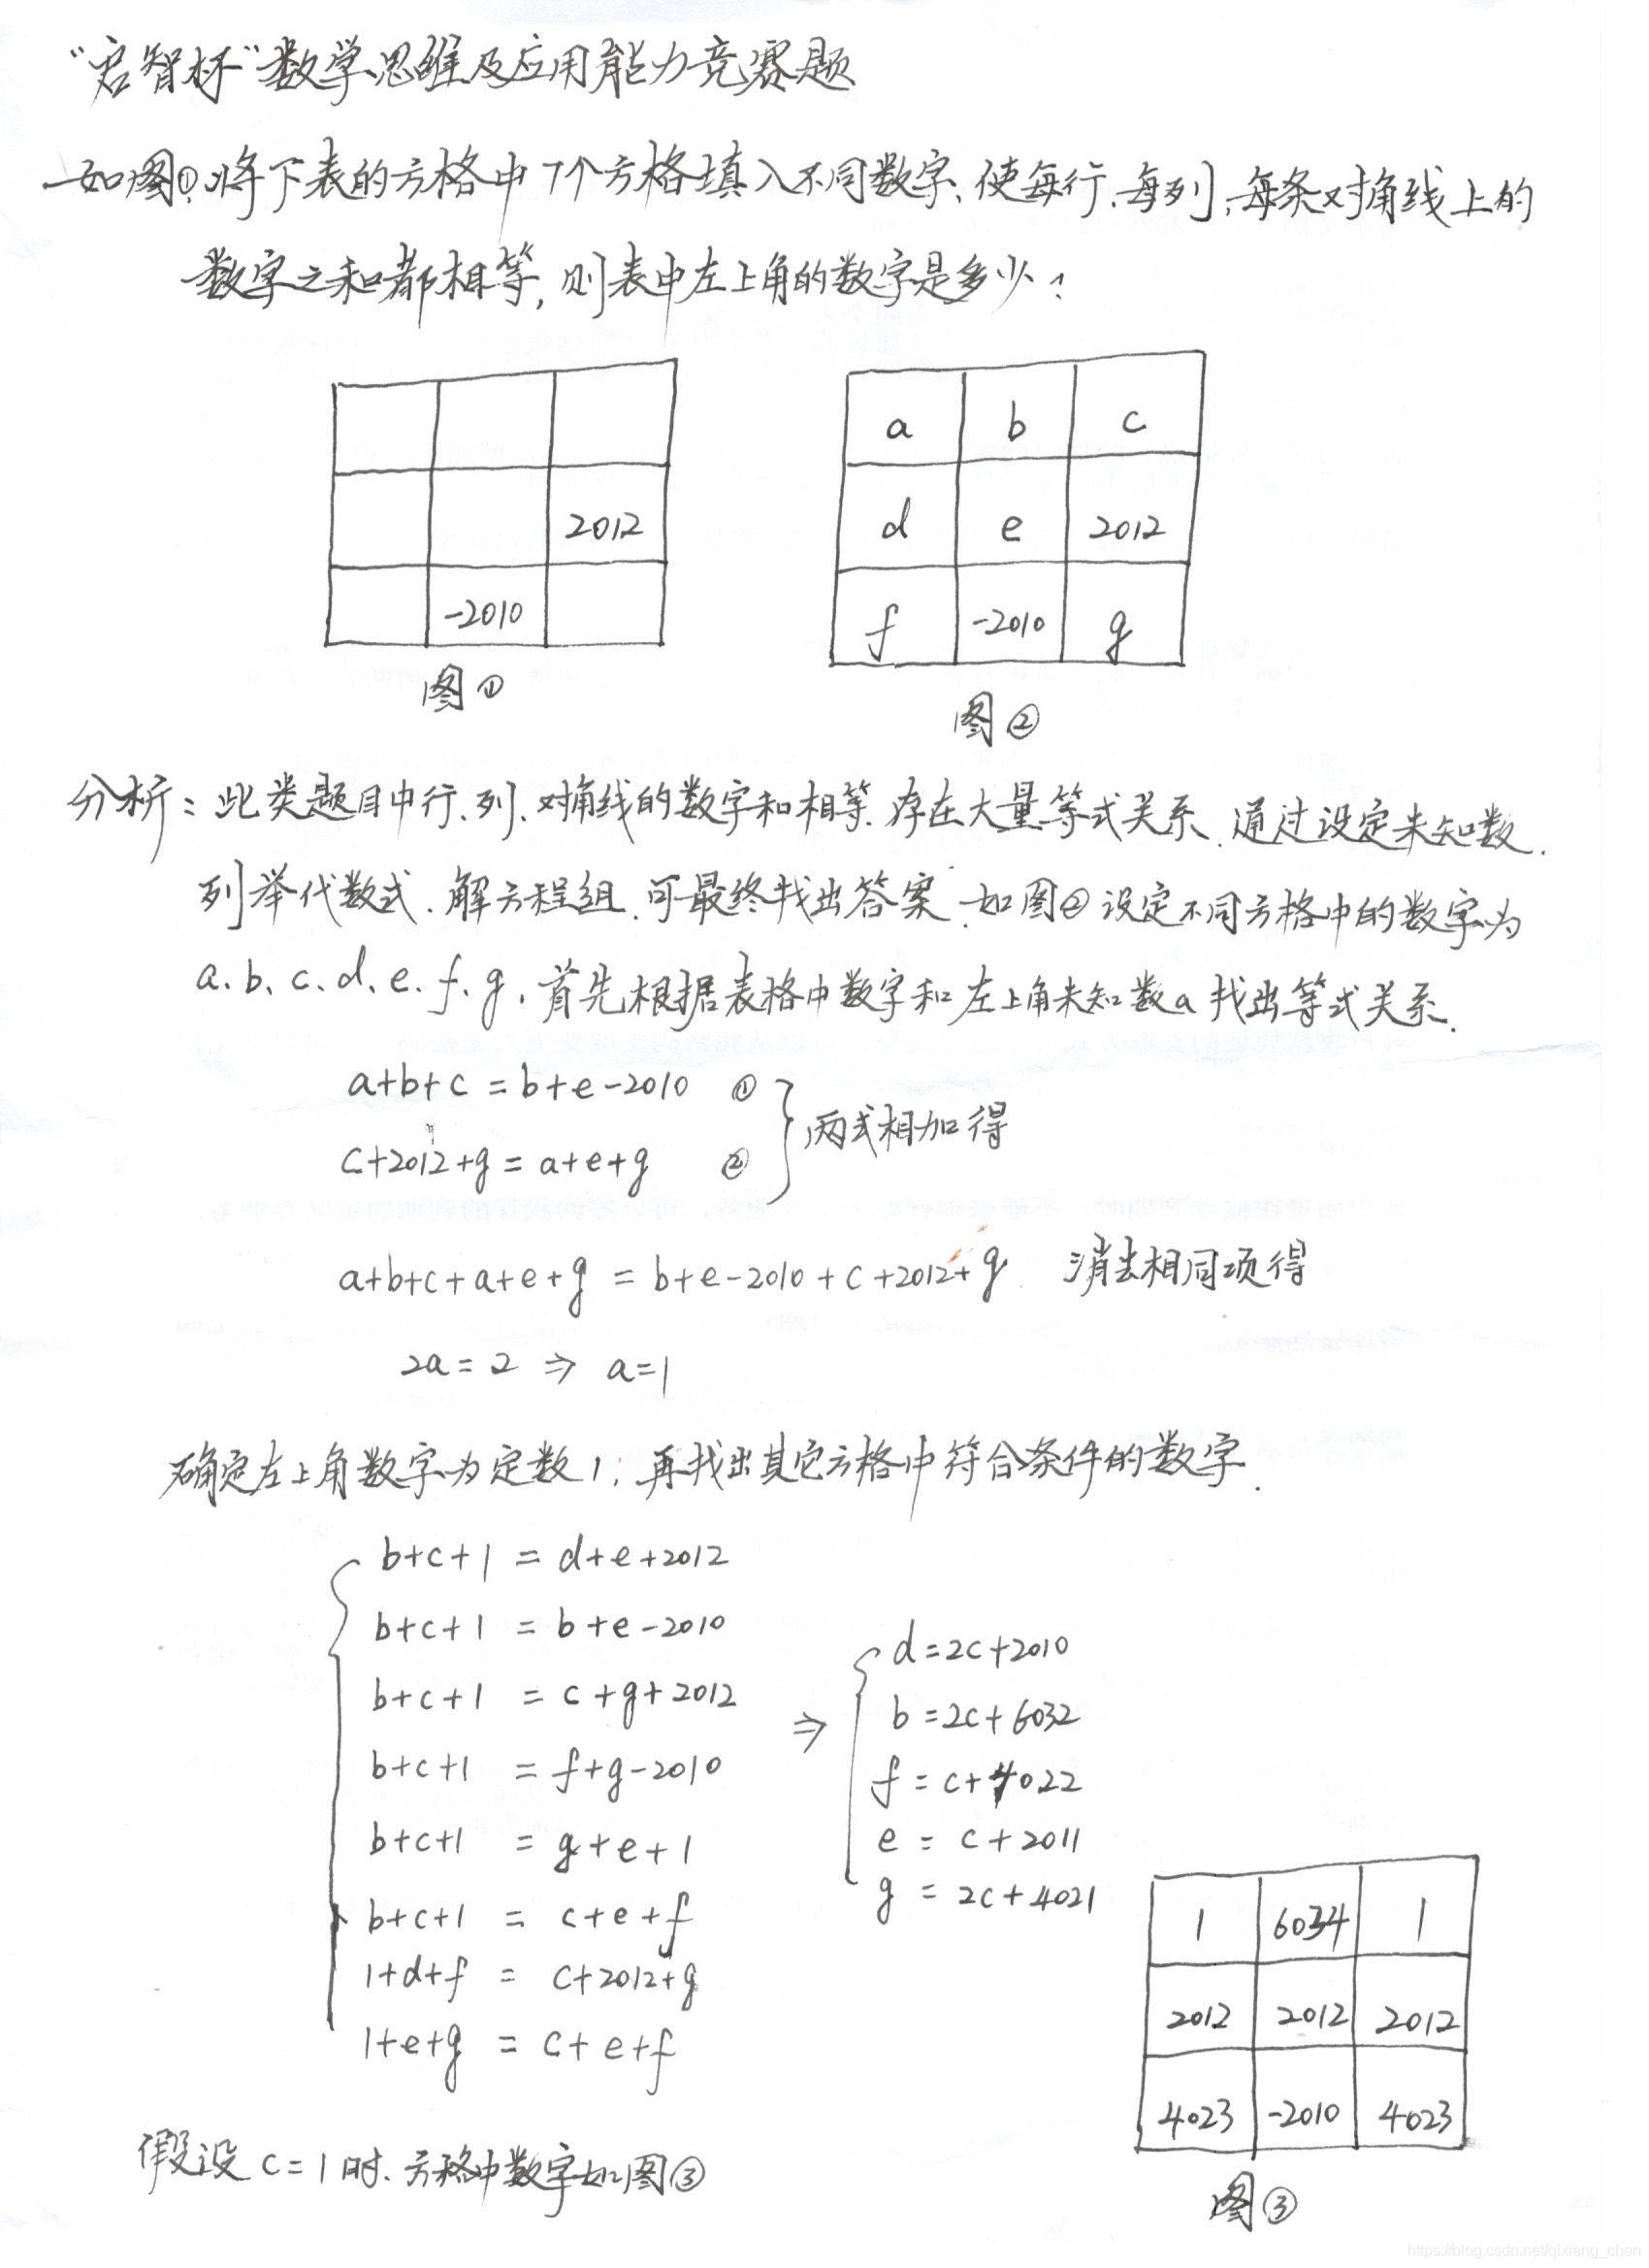 “启智杯”数学思维及应用能力竞赛题
如图①,将下表的方格中7个方格填入不同数字、使每行、每列、每条对角线上的
数字之和都相等,则表中左上角的数字是多少?
a b c
2012 d e 2012
-2010 f -2010 g
图① 图②
分析:此类题目中行、列、对角线的数字和相等、存在大量等式关系、通过设定未知数、
列举代数式、解方程组、可最终找出答案、如图②设定不同方格中的数字为
a、b、c、d、e、f、g,首先根据表格中数字和左上角未知数a找出等式关系.
a+b+c = b+e-2010 ①
两式相加得
c+2012+g = a+e+g ②
a+b+c+a+e+g = b+e-2010+c+2012+g 消去相同项得
2a=2 ⇒ a=1
确定左上角数字为定数1,再找出其它方格中符合条件的数字.
b+c+1 = d+e+2012
b+c+1 = b+e-2010
b+c+1 = c+g+2012
b+c+1 = f+g-2010
b+c+1 = g+e+1
b+c+1 = c+e+f
1+d+f = c+2012+g
1+e+g = c+e+f
⇒
d=2c+2010
b=2c+6032
f=c+4022
e=c+2011
g=2c+4021
1 6034 1
2012 2012 2012
4023 -2010 4023
假设c=1时、方格中数字如图③
图③
https://blog.csdn.net/qixiang_chen